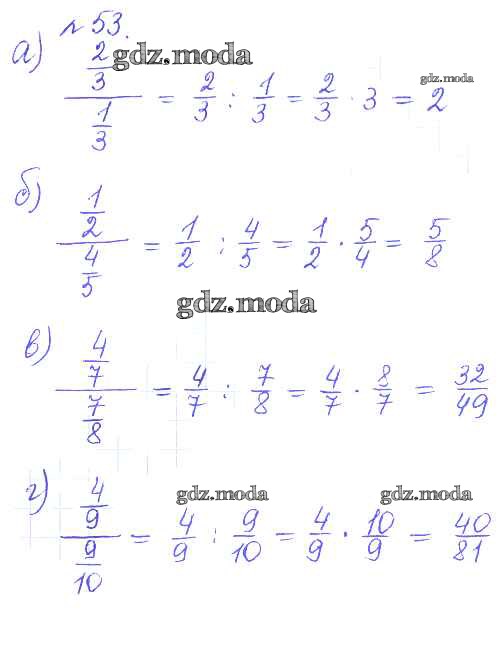 № 53.
а) (2/3)/(1/3) = 2/3 : 1/3 = 2/3 · 3 = 2
gdz.moda
gdz.moda
б) (1/2)/(4/5) = 1/2 : 4/5 = 1/2 · 5/4 = 5/8
gdz.moda
в) (4/7)/(7/8) = 4/7 : 7/8 = 4/7 · 8/7 = 32/49
gdz.moda
gdz.moda
г) (4/9)/(9/10) = 4/9 : 9/10 = 4/9 · 10/9 = 40/81